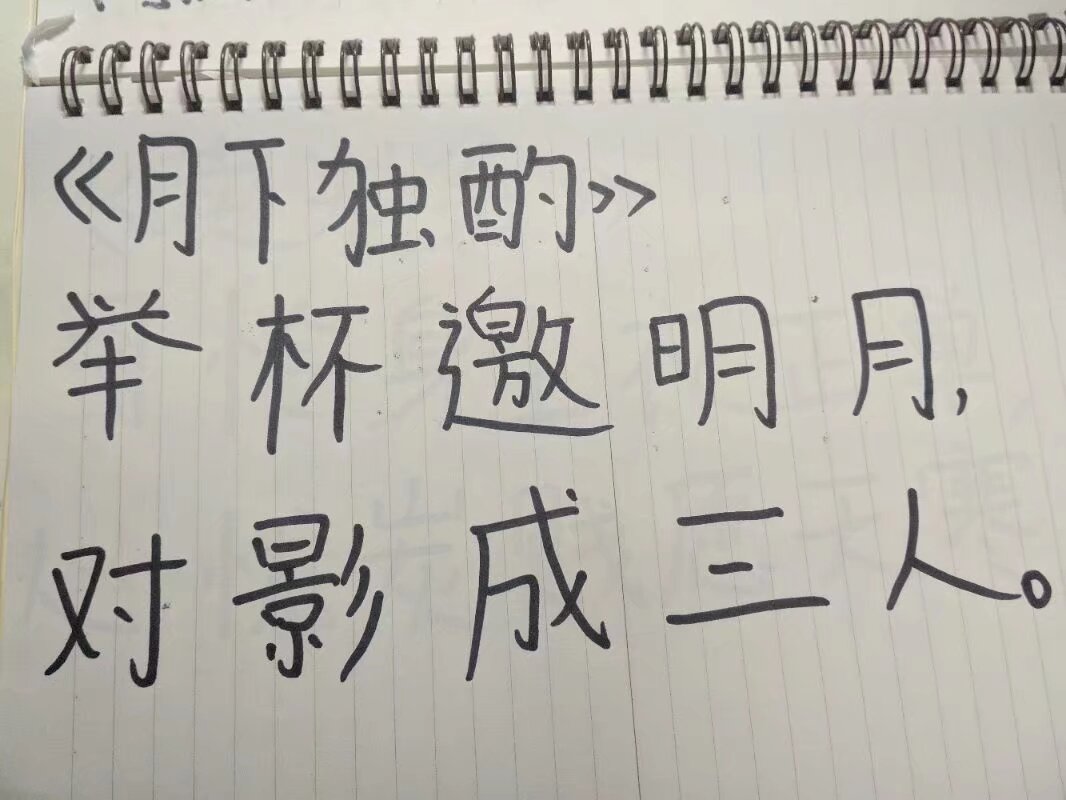 《月下独酌》
举杯邀明月,
对影成三人。